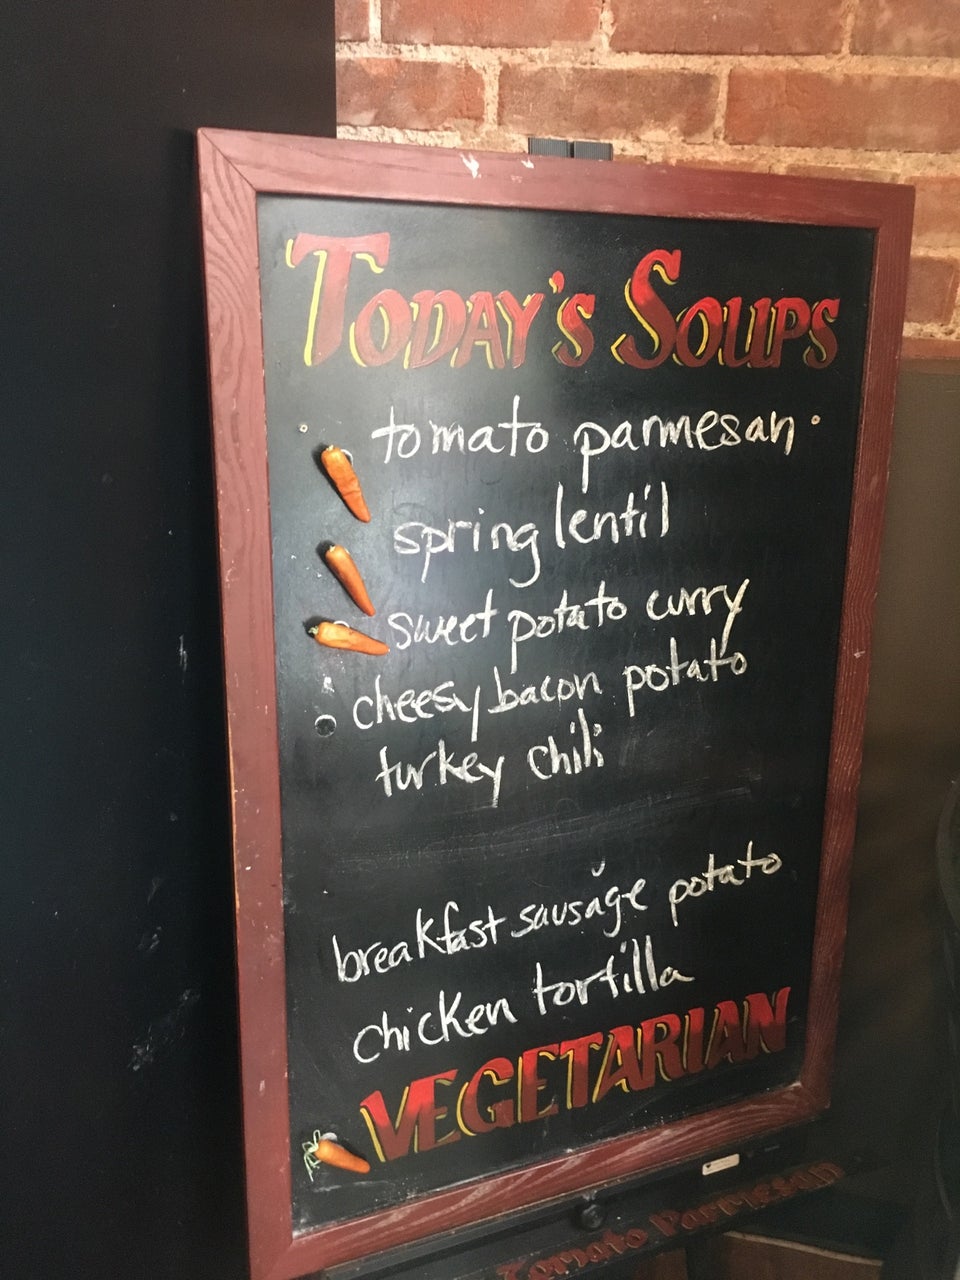 TODAY'S SOUPS
tomato parmesan
spring lentil
sweet potato curry
cheesy bacon potato
turkey chili
breakfast sausage potato
chicken tortilla
VEGETARIAN
Tomato Parmesan